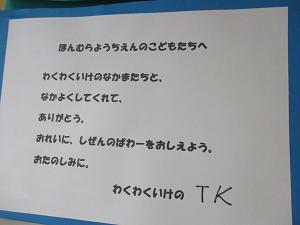 ほんむらようちえんのこどもたちへ
わくわくいけのなかまたちと、
なかよくしてくれて、
ありがとう。
おれいに、しぜんのぱわーをおしえよう。
おたのしみに。
わくわくいけの TK